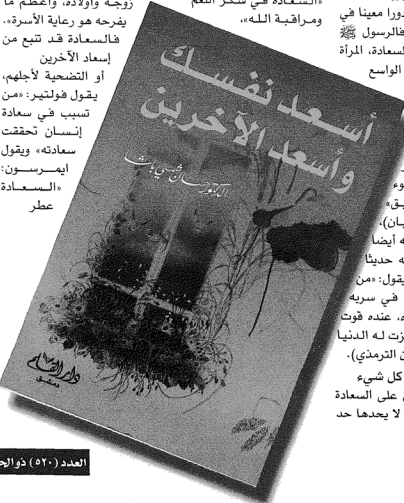 دورا معينا في
فالرسول ﷺ
السعادة، المرأة
الواسع
أيضا
حديثا
يقول: «من
في سربه
ه، عنده قوت
زت له الدنيا
ن الترمذي).
كل شيء
على السعادة
لا يحدها حد
«السعادة في شكر النعم
ومراقبة الله»،
زوجه وأولاده، وأعظم ما
يفرحه هو رعاية الأسرة».
فالسعادة قد تنبع من
إسعاد الآخرين
أو التضحية لأجلهم،
يقول فولتير: «من
تسبب في سعادة
إنسان تحققت
سعادته» ويقول
ايمرسون:
«السعادة
عطر
أسعد نفسك
وأسعد الآخرين
الدكتور حسان شمسي باشا
دار القلم
دمشق
العدد (٥٢٠) ذو الحـ